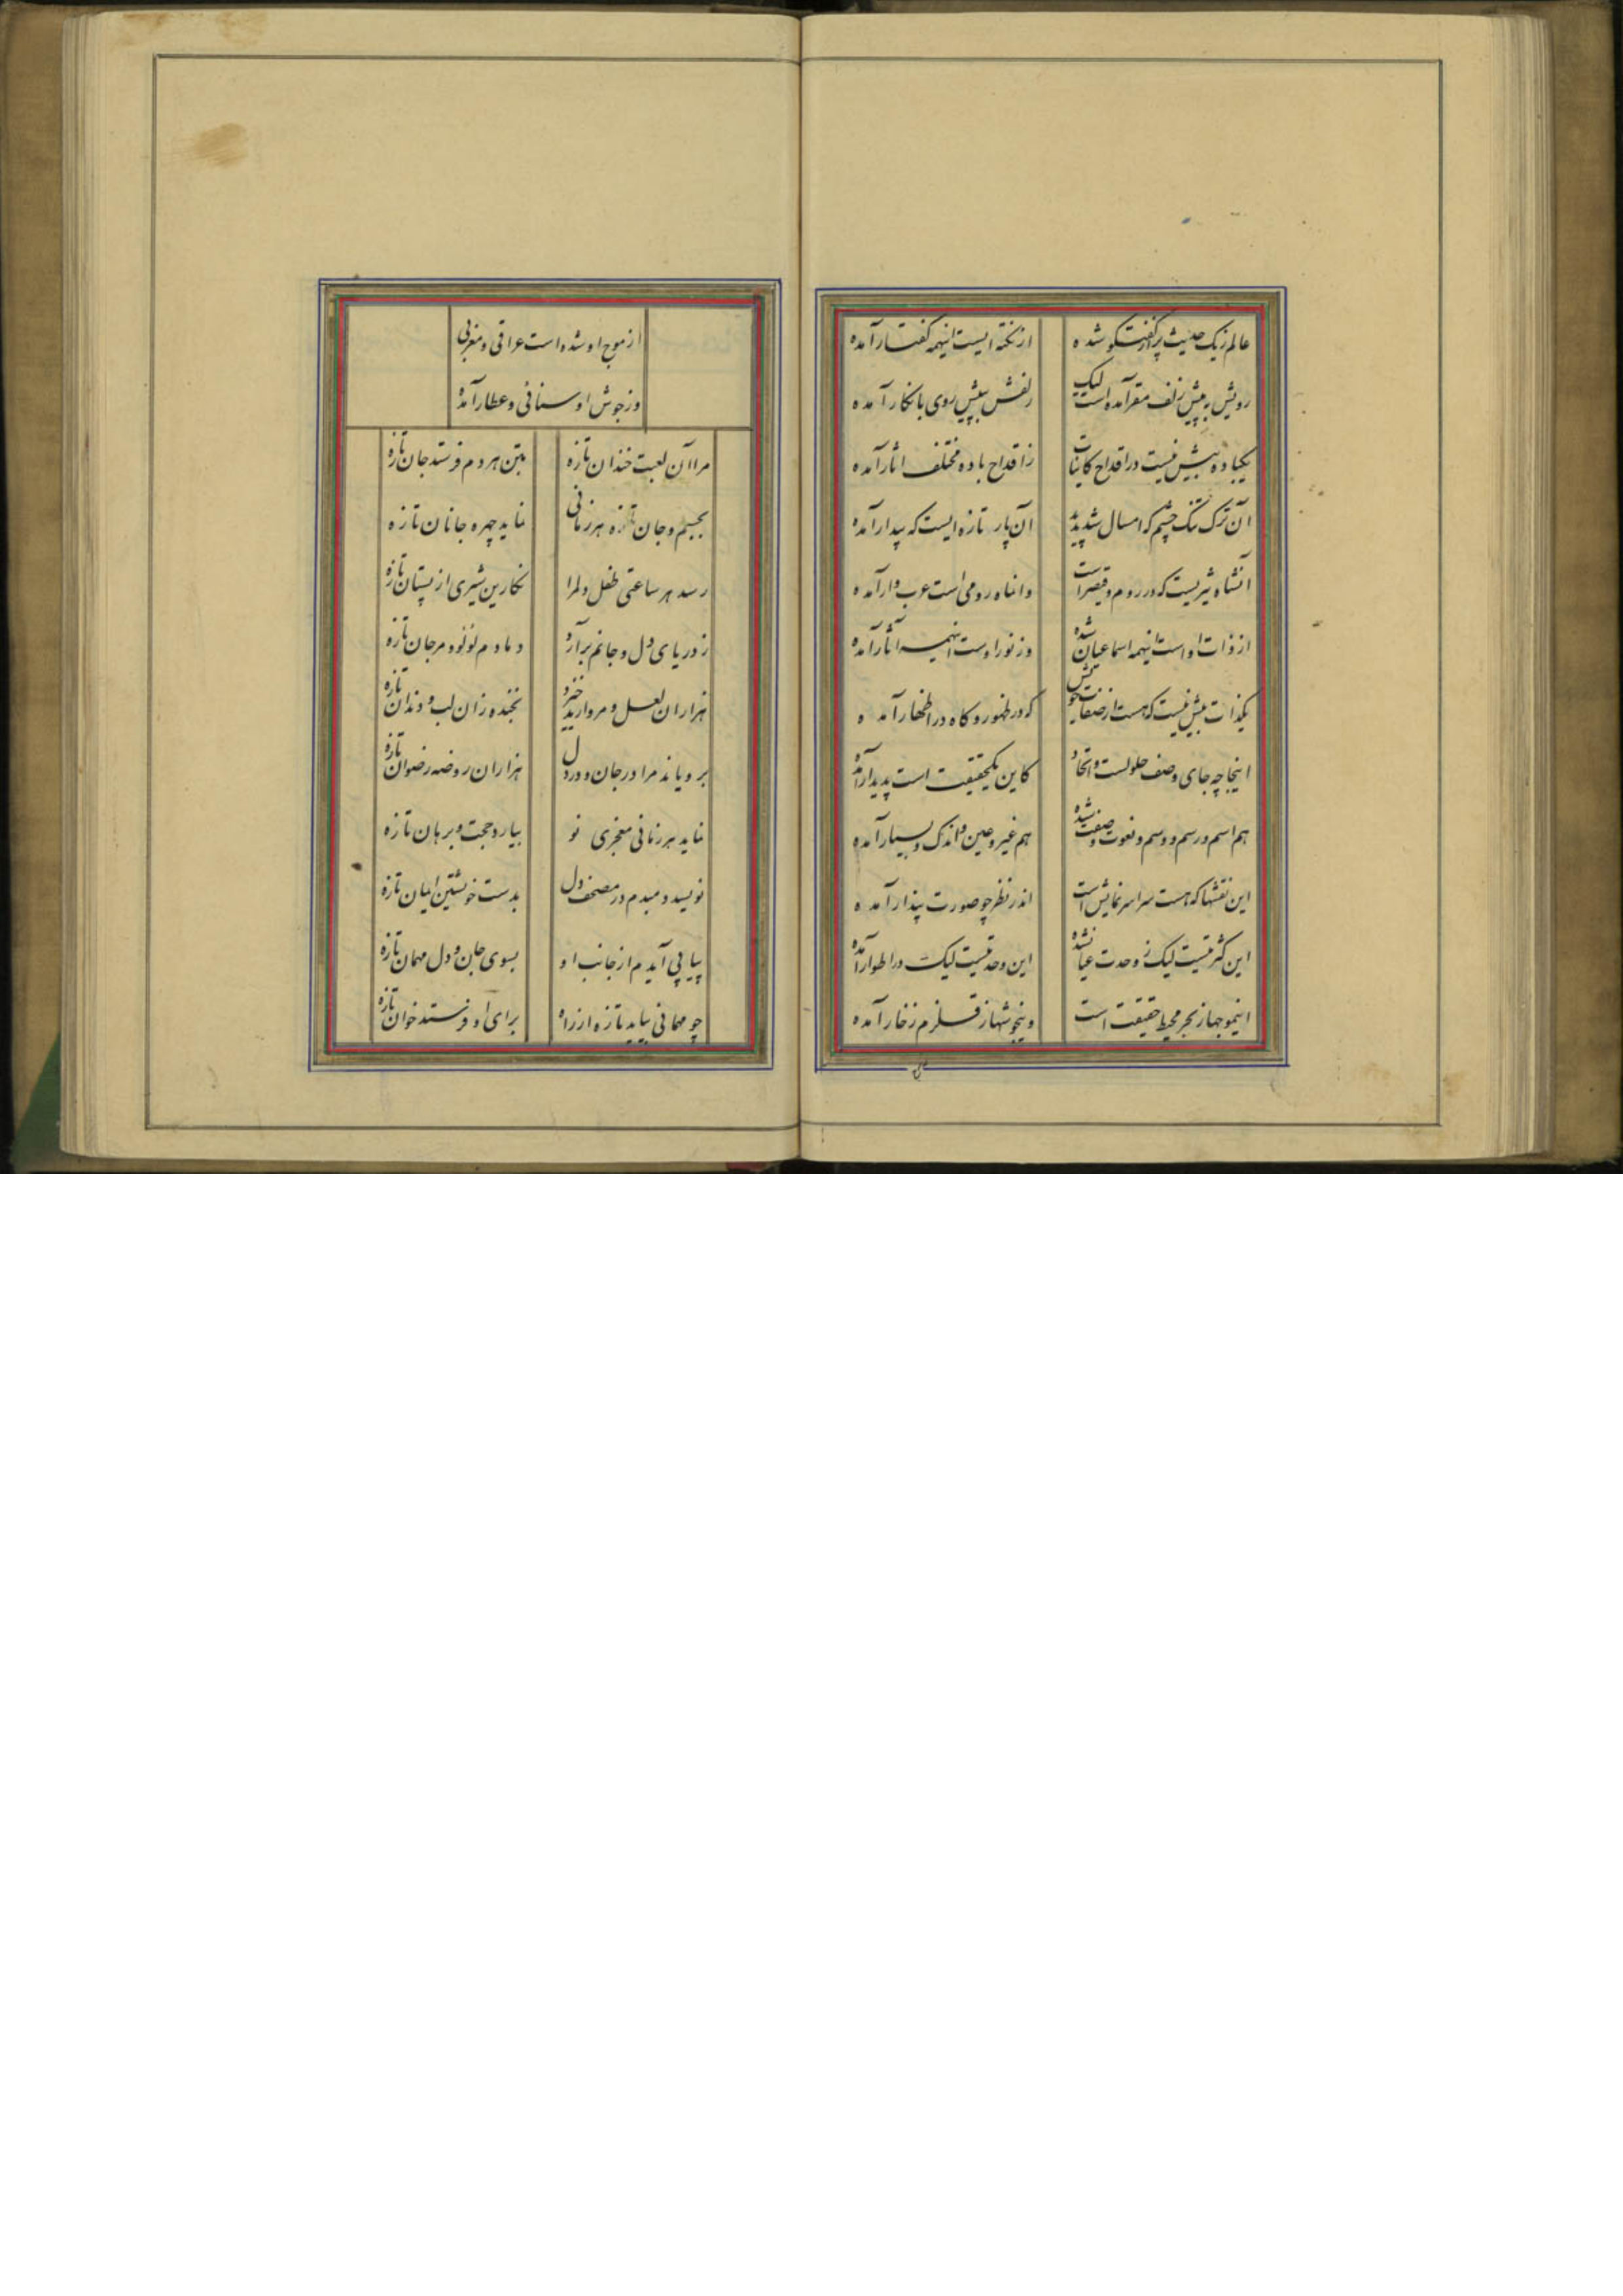 عالم زیک حدیث پر از گفتگو شده
از نکته ایست اینهمه گفتار آمده
رویش به پیش زلف مقر آمده است لیک
زلفش بپیش روی بانکار آمده
یکباده بیش نیست در اقداح کاینات
ز اقداح باده مختلف اثار آمده
آن ترک تنک چشم که امسال شد پدید
آن پار تازه ایست که پیدار آمده
انشاه نیز نیست که در روم قیصر است
وانماه رومی است عرب وار آمده
از ذات اوست اینهمه اسما عیان شده
وز نور اوست اینهمه آثار آمده
یکذات بیش نیست که هست از صفات خویش
که در ظهور و کاه در اظهار آمده
اینجا چه جای وصف حلولست و اتحاد
کاین یکحقیقت است پدیدار آمده
هم اسم و رسم و وسم و نعوت و صفت شده
هم غیر و عین و اندک و بسیار آمده
این نقشها که هست سراسر نمایش است
اندر نظر چو صورت پندار آمده
این کثرتیست لیک ز وحدت عیان شده
این وحدتیست لیک در اطوار آمده
اینموجها ز بحر محیط حقیقت است
وینجوشها ز قلزم زخار آمده
از موج او شده است عراقی و مغربی
وز جوش او سنائی و عطار آمده
مرا آن لعبت خندان تازه
بتن هر دم فرستد جان تازه
بجسم و جان تازه هر زمانی
نماید چهره جانان تازه
رسد هر ساعتی طفل دلمرا
نکارین شیری از پستان تازه
ز دریای دل و جانم برآرد
دمادم لؤلؤ و مرجان تازه
هزاران لعل و مروارید خیزد
بخنده زان لب و دندان تازه
برویاند مرا در جان و در دل
هزاران روضه رضوان تازه
نماید هر زمانی معجزی نو
بیارد حجت و برهان تازه
نویسد دمبدم در مصحف دل
بدست خویشتن ایمان تازه
پیاپی آیدم از جانب او
بسوی جان و دل مهمان تازه
چو مهمانی بیاید تازه از راه
برای او فرستد خوان تازه